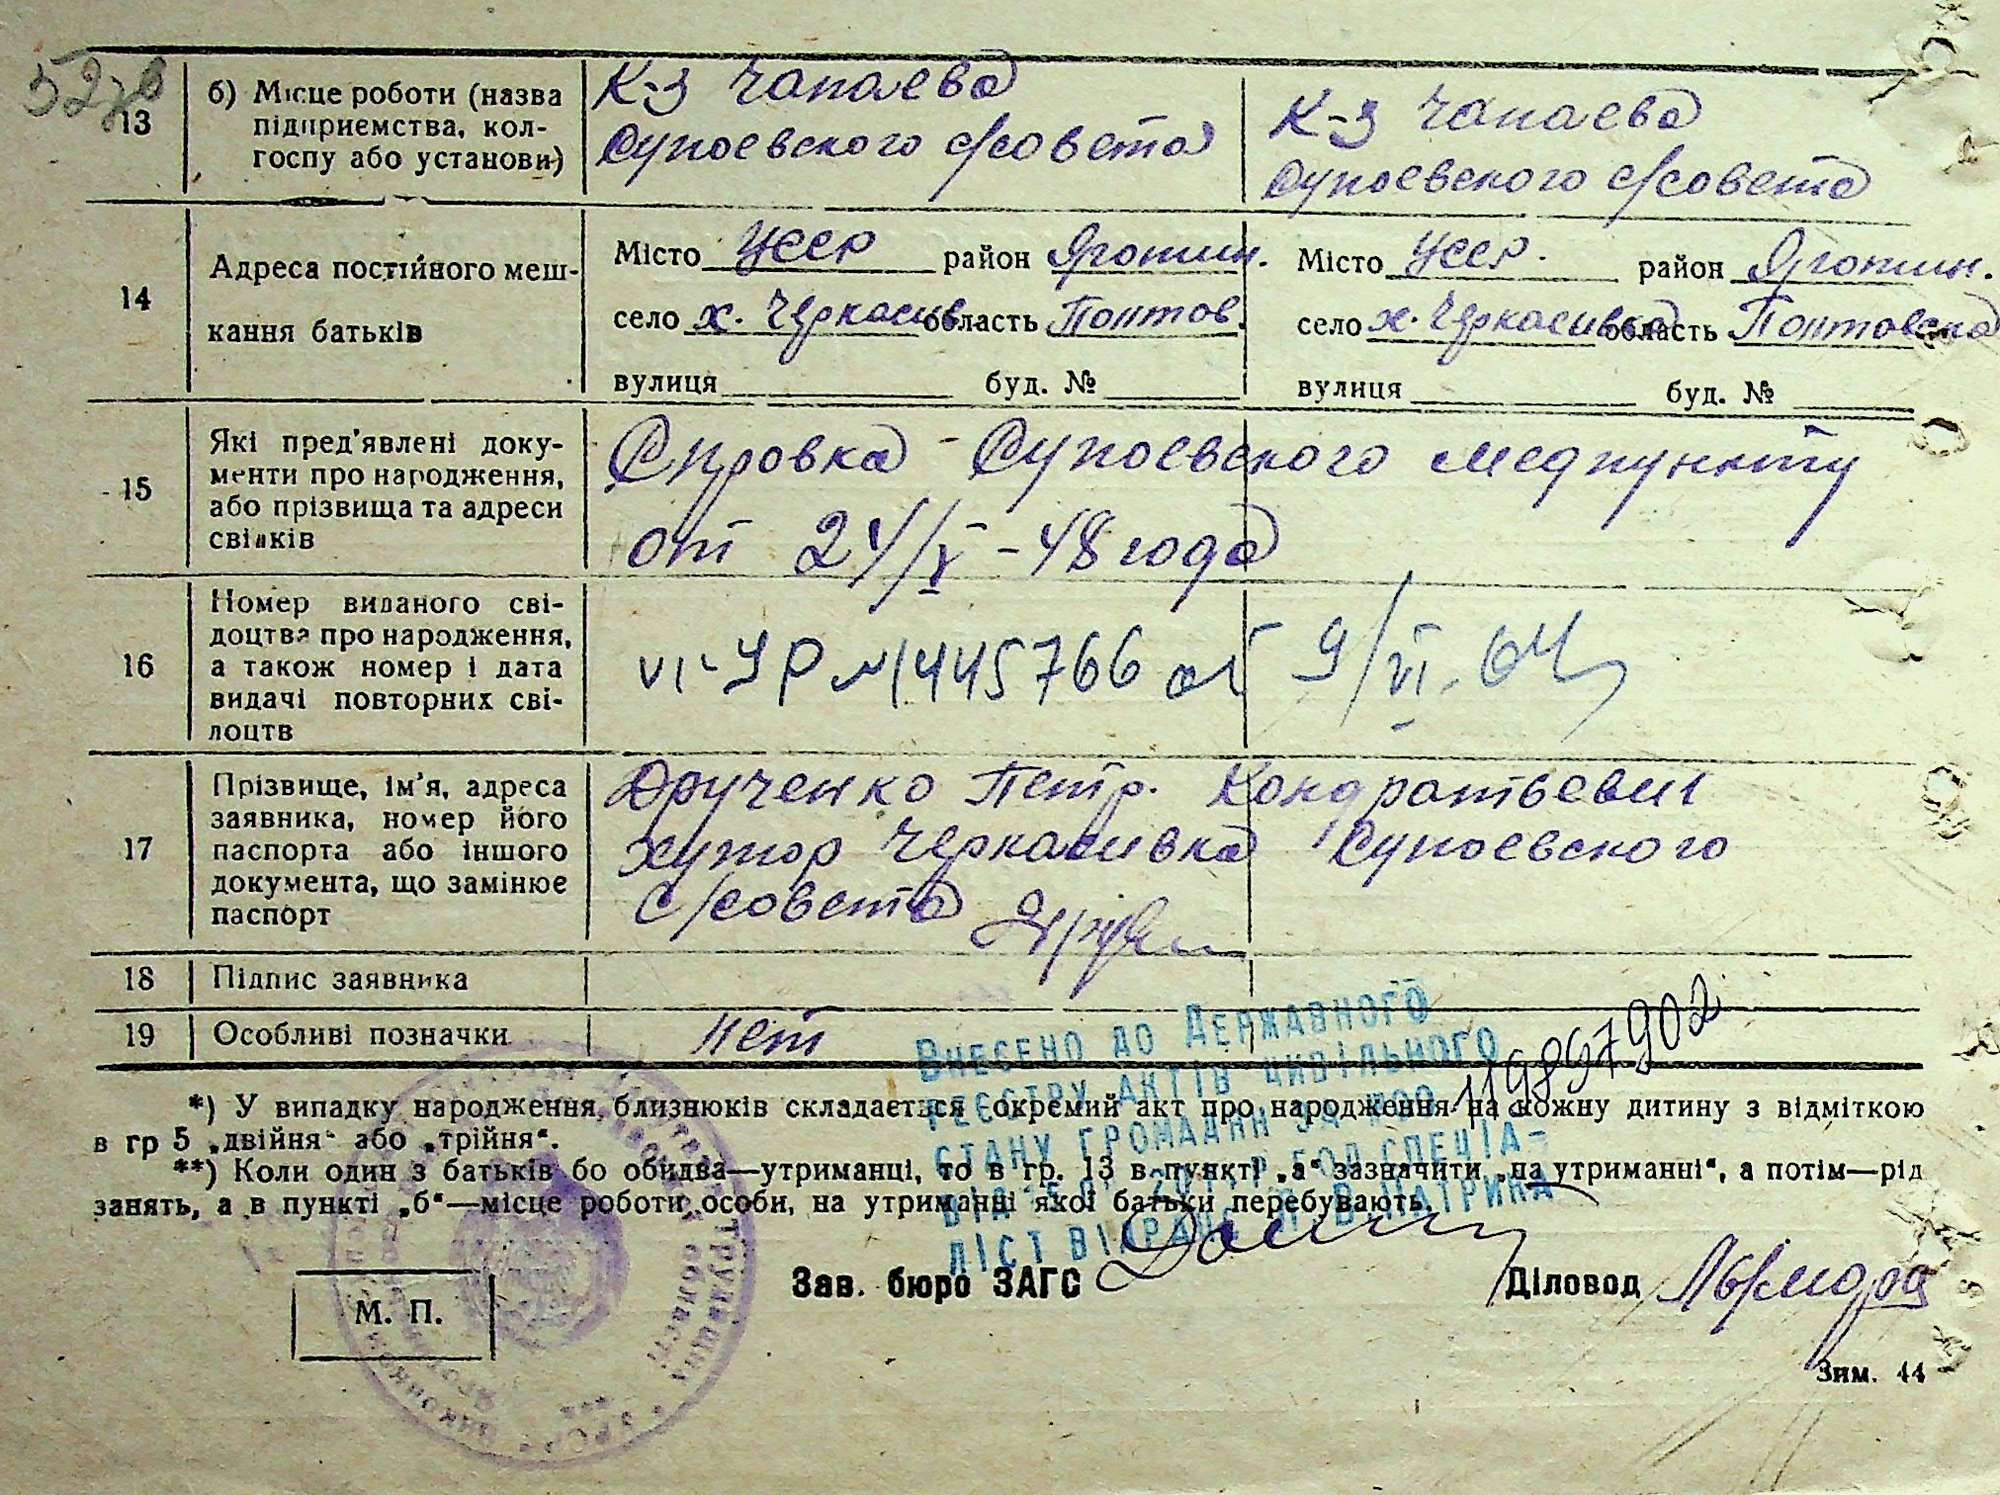 52зв
13
б) Місце роботи (назва
підприємства, кол-
госпу або установи)
К-з Чапаева
Супоевского с/совета
К-з Чапаева
Супоевского с/совета
14
Адреса постійного меш-
кання батьків
Місто УССР район Яготин.
село х. Черкасив. область Полтов.
вулиця буд. №
Місто УССР. район Яготин.
село х. Черкасивка область Полтовска
вулиця буд. №
15
Які пред'явлені доку-
менти про народження,
або прізвища та адреси
свідків
Справка - Супоевского медпункту
от 24/V-48 года
16
Номер виданого сві-
доцтва про народження,
а також номер і дата
видачі повторних сві-
доцтв
VI-УР №1445766 от 9/VI-64
17
Прізвище, ім'я, адреса
заявника, номер його
паспорта або іншого
документа, що замінює
паспорт
Друченко Петр. Кондратьевич
хутор Черкасивка Супоевского
с/совета
18
Підпис заявника
19
Особливі позначки
нет
Внесено до Державного
реєстру актів цивільного
стану громадян за №00 1198967902
спеціа-
ліст
*) У випадку народження близнюків складається окремий акт про народження на кожну дитину з відміткою
в гр 5 „двійня“ або „трійня“.
**) Коли один з батьків бо обидва—утриманці, то в гр. 13 в пункті „а“ зазначити „на утриманні“, а потім—рід
занять, а в пункті „б“—місце роботи особи, на утриманні якої батьки перебувають.
М. П.
Зав. бюро ЗАГС
Діловод
Зим. 44